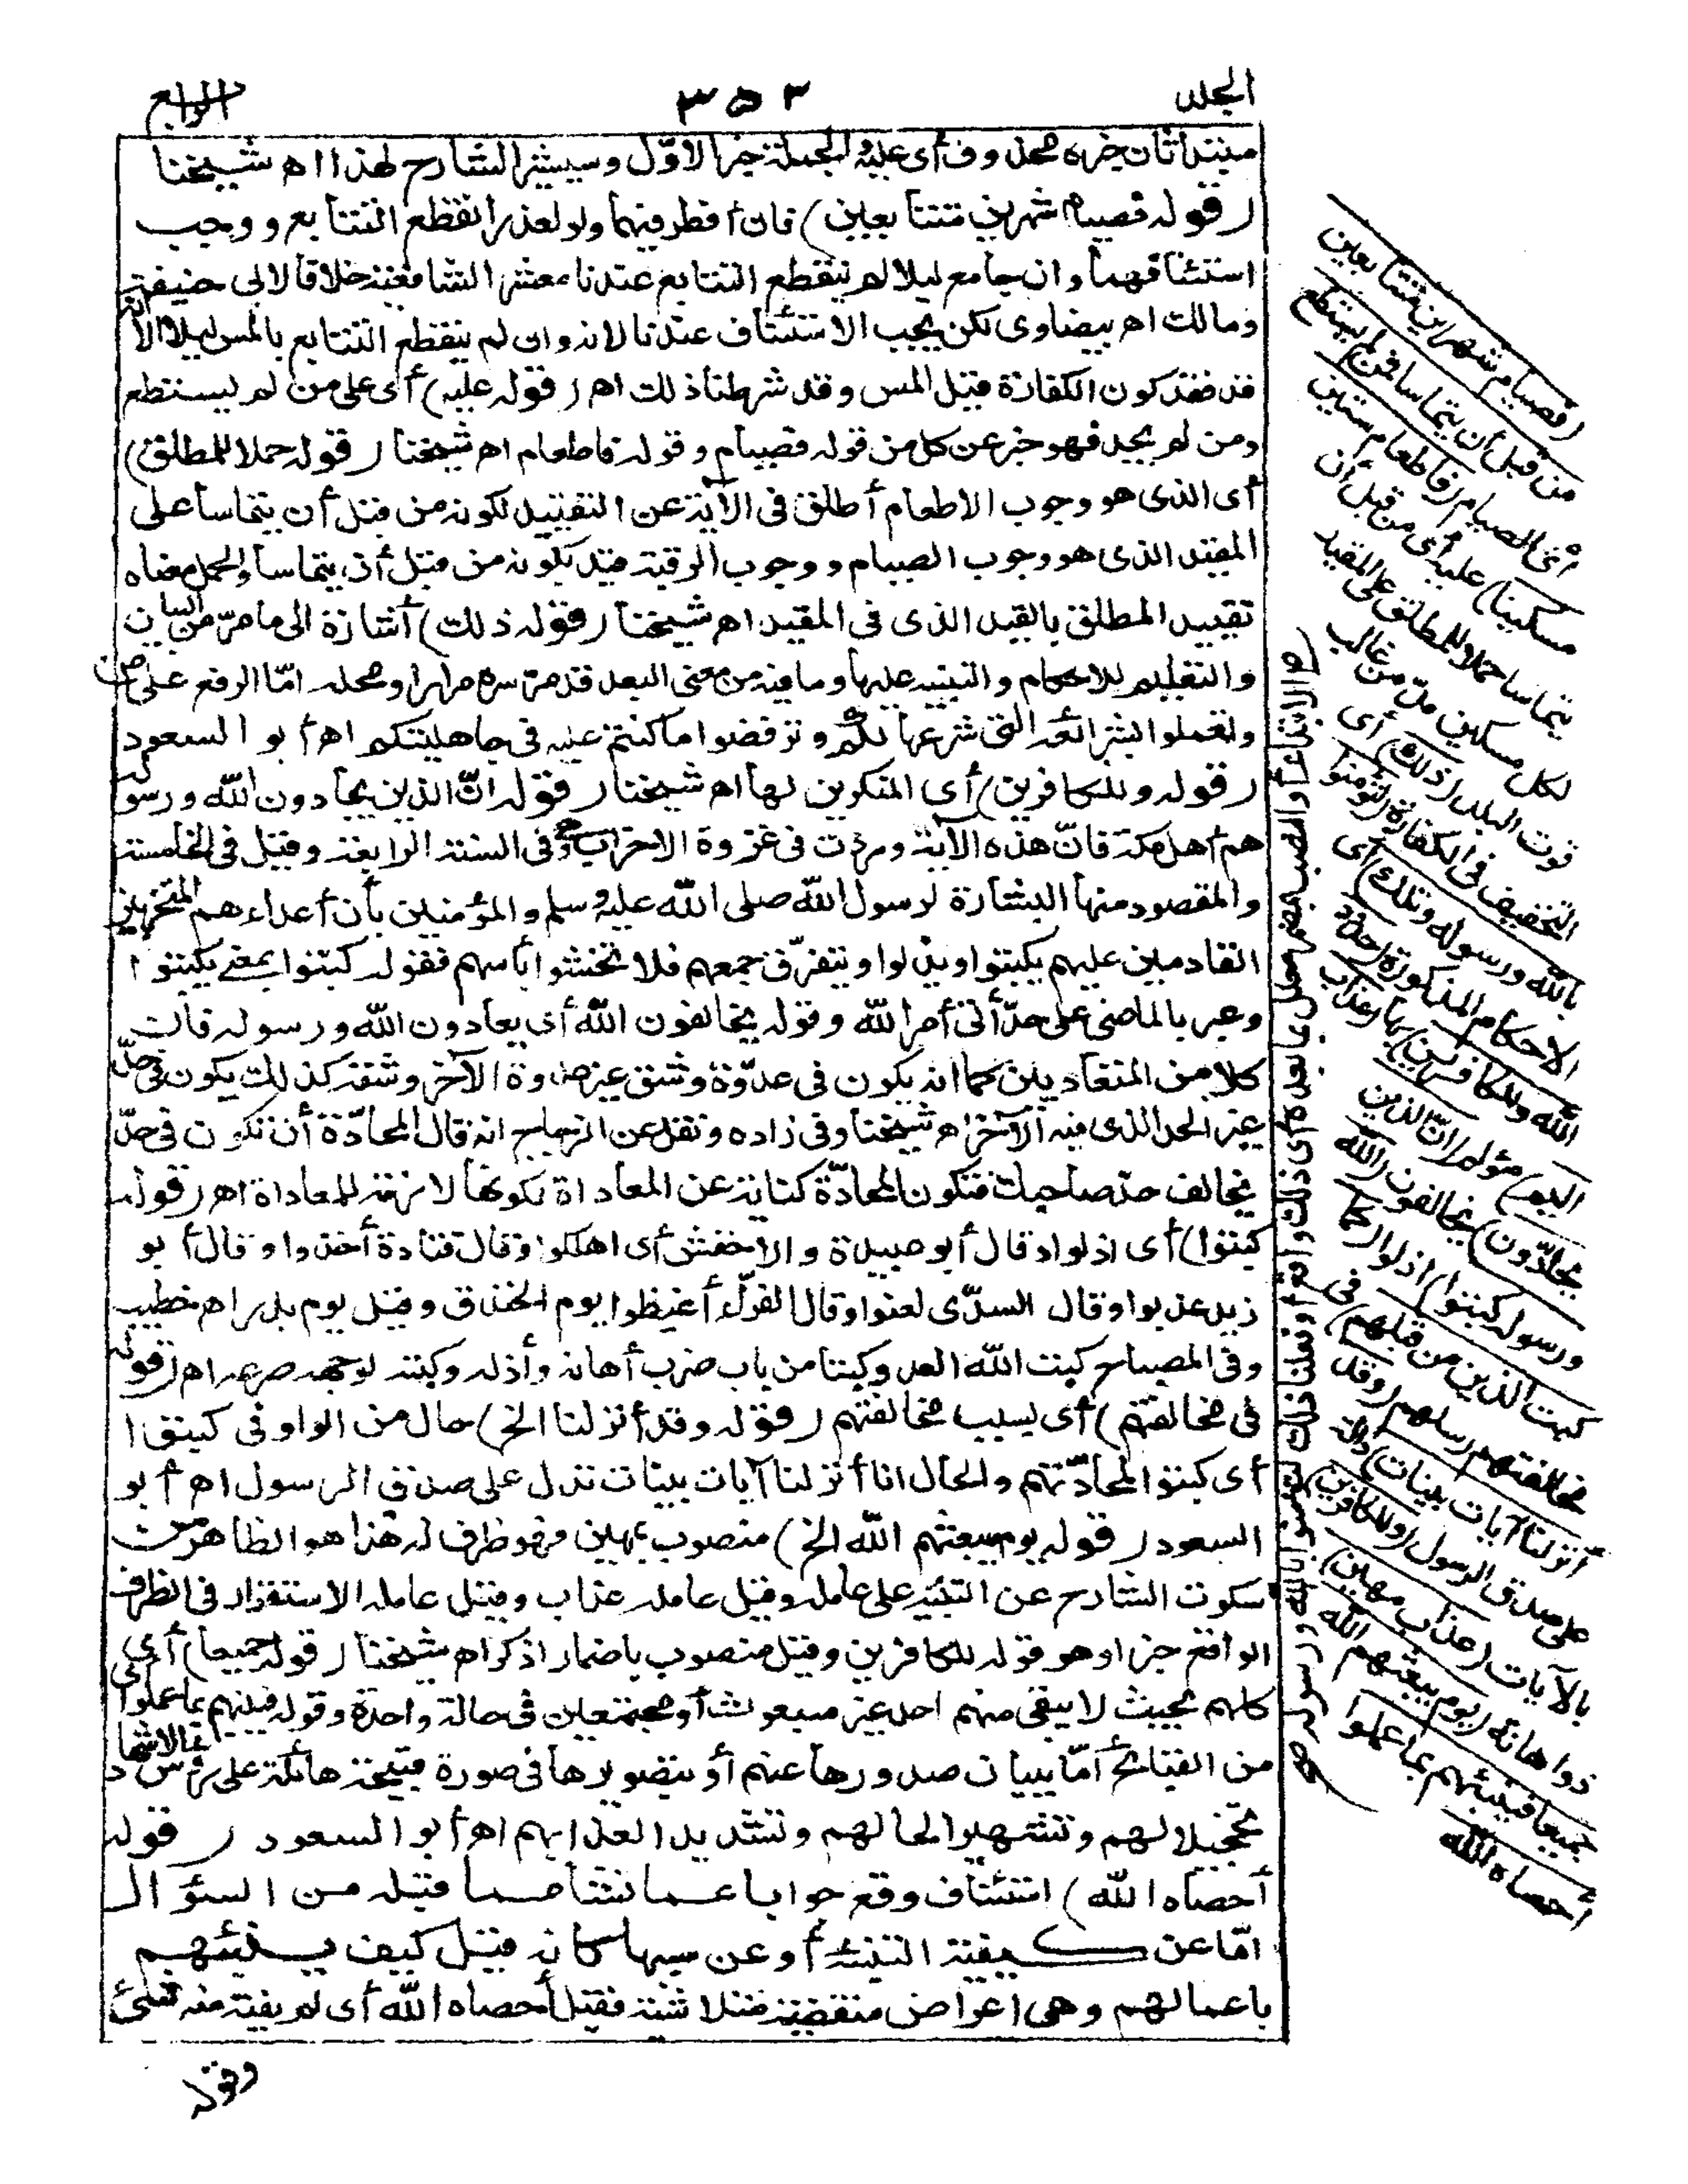 الجلد ٣٥٣ الرابع
مبتدأ ثان خبره محذوف أى عليه والجملة خبر الاوّل وسيشير الشارح لهذا اه شيخنا
(قوله فصيام شهرين متتابعين) فان أفطر فيهما ولو لعذر انقطع التتابع ووجب
استئنافهما وان جامع ليلا لم ينقطع التتابع عندنا معشر الشافعية خلافا لابى حنيفة
ومالك اه بيضاوى لكن يجب الاستئناف عندنا لانه وان لم ينقطع التتابع بالمس ليلا الا انه
قد فقد كون الكفارة قبل المس وقد شرطنا ذلك اه (قوله عليه) أى على من لم يستطع
ومن لم يجد فهو خبر عن كل من قوله فصيام وقوله فاطعام اه شيخنا (قوله حملا للمطلق)
أى الذى هو وجوب الاطعام أطلق فى الآية عن التقييد بكونه من قبل أن يتماسا على
المقيد الذى هو وجوب الصيام ووجوب الرقبة قيد بكونه من قبل أن يتماسا والحمل معناه
تقييد المطلق بالقيد الذى فى المقيد اه شيخنا (قوله ذلك) أشارة الى ما مرّ من البيان
والتعليم للاحكام والتنبيه عليها وما فيه من معنى البعد قد مرّ سره مرارا ومحله امّا الرفع على
وتعملوا بشرائعه التى شرعها لكم وترفضوا ما كنتم عليه فى جاهليتكم اه أبو السعود
(قوله وللكافرين) أى المنكرين لها اه شيخنا (قوله انّ الذين يحادون الله ورسوله
هم أهل مكة فانّ هذه الآية وردت فى غزوة الاحزاب وهى فى السنة الرابعة وقيل فى الخامسة
والمقصود منها البشارة لرسول الله صلى الله عليه وسلم والمؤمنين بأن أعداءهم المتحزبين
القادمين عليهم يكبتوا ويذلوا ويتفرّق جمعهم فلا تخشوا بأسهم فقوله كبتوا بمعنى يكبتوا
وعبر بالماضى على حدّ أتى أمر الله وقوله يخالفون الله أى يعادون الله ورسوله فان
كلا من المتعاديين كما انه يكون فى عدوّة وشق غير عدوة الآخر وشقه كذلك يكون فى حدّ
غير الحد الذى فيه الآخر اه شيخنا وفى زاده ونقل عن الزجاج انه قال المحادّة أن تكون فى حدّ
يخالف حدّ صاحبك فتكون المحادّة كناية عن المعاداة لكونها لازمة للمعاداة اه (قوله
كبتوا) أى اذلوا وقال أبو عبيدة والاخفش أى اهلكوا وقال قتادة أخذوا وقال أبو
زيد عذبوا وقال السدّى لعنوا وقال الفرّاء أغيظوا يوم الخندق وقيل يوم بدر اه خطيب
وفى المصباح كبت الله العدو كبتا من باب ضرب أهانه وأذله وكبته لوجهه صرعه اه (قوله
فى مخالفتهم) أى بسبب مخالفتهم (قوله وقد أنزلنا الخ) حال من الواو فى كبتوا
أى كبتوا لمحادّتهم والحال انا أنزلنا آيات بينات تدل على صدق الرسول اه أبو
السعود (قوله يوم يبعثهم الله الخ) منصوب بمهين فهو ظرف له هذا هو الظاهر من
سكوت الشارح عن التنبيه على عامله وقيل عامله عذاب وقيل عامله الاستقرار فى الظرف
الواقع خبرا وهو قوله للكافرين وقيل منصوب باضمار اذكر اه شيخنا (قوله جميعا) أى
كلهم بحيث لا يبقى منهم احد غير مبعوث أو مجتمعين فى حالة واحدة وقوله فينبئهم بما عملوا أى
من القبائح أمّا ببيان صدورها عنهم أو بتصويرها فى صورة قبيحة هائلة على رؤس الاشهاد
تخجيلا لهم وتشهيرا لحالهم وتشديدا لعذابهم اه أبو السعود (قوله
أحصاه الله) استئناف وقع جوابا عما نشأ مما قبله من السؤال
امّا عن كيفية التنبئة أو عن سببها كانه قيل كيف ينبئهم
باعمالهم وهى اعراض منقضية متلاشية فقيل أحصاه الله أى لم يفته منه شئ
وقوله
(فصيام شهرين متتابعين
من قبل أن يتماسا فمن لم يستطع
أى الصيام (فاطعام ستين
مسكينا) عليه أى من قبل أن
يتماسا حملا للمطلق على المقيد
لكل مسكين مدّ من غالب
قوت البلد (ذلك) أى
التخفيف فى الكفارة (لتؤمنوا
بالله ورسوله وتلك) أى
الاحكام المذكورة (حدود
الله وللكافرين) بها (عذاب
اليم) مؤلم (انّ الذين
يحادّون) يخالفون (الله
ورسوله كبتوا) اذلوا (كما
كبت الذين من قبلهم) فى
مخالفتهم رسلهم (وقد
أنزلنا آيات بينات) دالة
على صدق الرسول (وللكافرين)
بالآيات (عذاب مهين)
ذو اهانة (يوم يبعثهم الله
جميعا فينبئهم بما عملوا
أحصاه الله